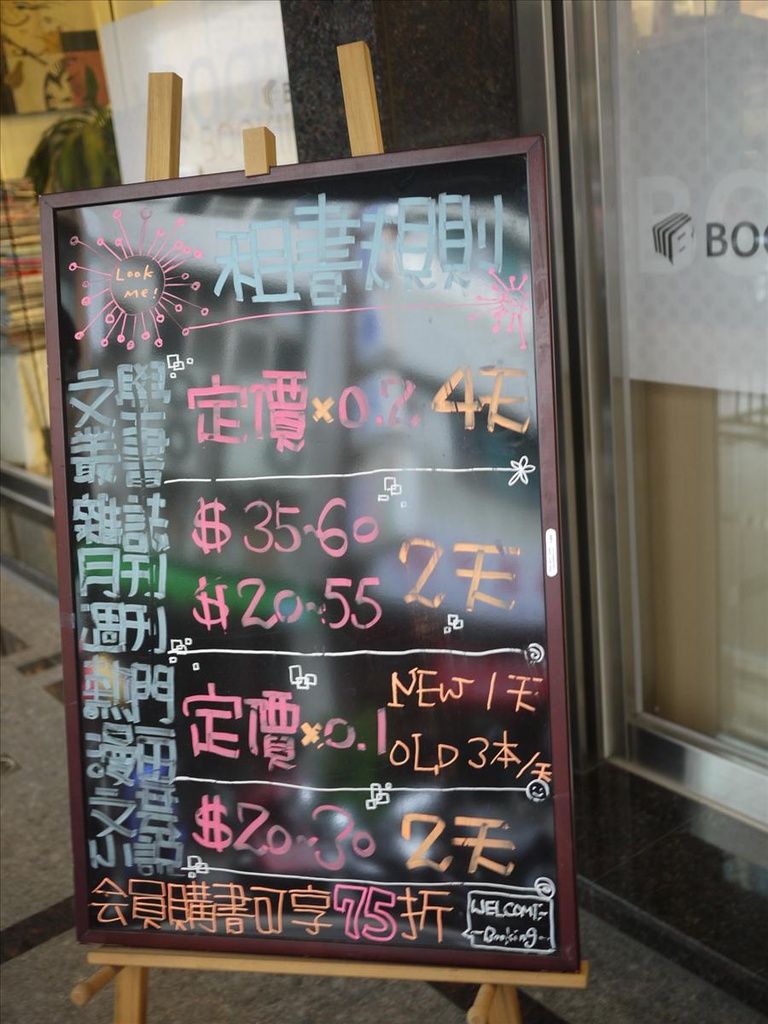 Look
ME!
租書規則
文學
叢書
定價×0.2 4天
雜誌
月刊
週刊
$35-60
$20-55
2天
熱門
漫畫
定價×0.1
NEW 1天
OLD 3本/天
文藝
小說
$20-30 2天
会員購書可享75折
WELCOME
BOO